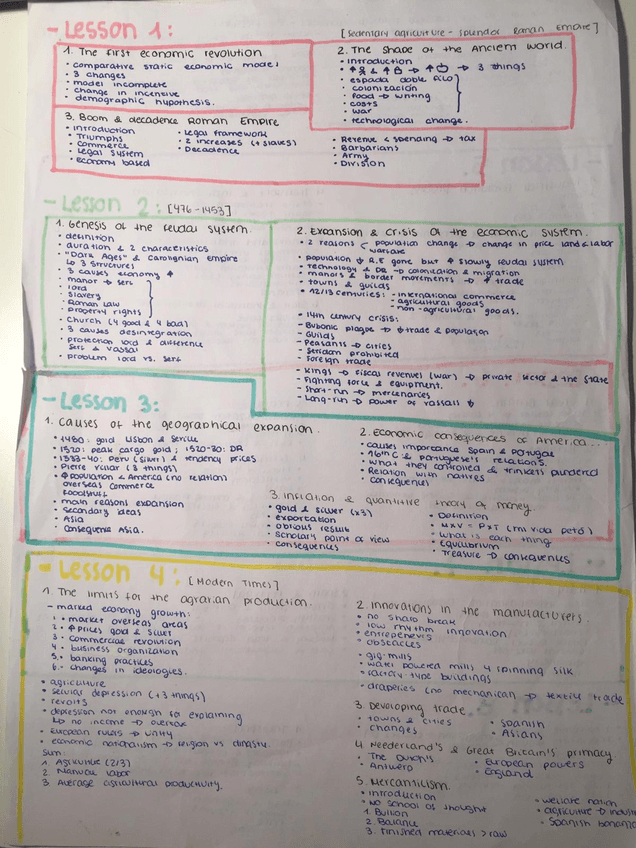 - Lesson 1:
[Sedentary agriculture - splendor Roman Empire]
1. The first economic revolution
• comparative static economic model
• 3 changes
• model incomplete
• change in incentive
• demographic hypothesis.
2. The shape of the Ancient World.
• introduction
→ 3 things
• espada doble filo
• colonization
• food → writing
• costs
• war
• technological change.
3. Boom & decadence Roman Empire
• introduction
• Triumphs
• commerce
• Legal system
• economy based
• Legal framework
• 2 increases (+ slaves)
• Decadence
• Revenue < spending → tax
• Barbarians
• Army
• Division
- Lesson 2: [476-1453]
1. Genesis of the feudal system.
• definition
• duration & 2 characteristics
• "Dark Ages" & Carolingian Empire
↳ 3 structures
• 3 causes economy ↑
• manor → serf
• lord
• slavery
• Roman Law
• property rights
• church (4 good & 4 bad)
• 3 causes desintegration
• protection lord & difference
serf & vassal
• problem lord vs. serf
2. Expansion & crisis of the economic system.
• 2 reasons < population change → change in price land & labor
warfare
• population ↓ R.E gone but ↑ slowly feudal system
• Technology & DR → colonization & migration
• manors & border movements → ↑ trade
• towns & guilds
• 12/13 centuries: - international commerce
- agricultural goods
- non-agricultural goods.
• 14th century crisis:
- Bubonic plague → ↓ trade & population
- Guilds
- Peasants → cities
- Serfdom prohibited
- Foreign trade
- Kings → fiscal revenues (war) → private sector & the state
- Fighting force & equipment.
- Short-run → mercenaries
- Long-run → power of vassall ↓
- Lesson 3:
1. Causes of the geographical expansion.
• 1480: gold Lisbon & Seville
• 1520: peak cargo gold; 1520-30: DR
• 1533-40: Peru (silver) & tendency prices
• Pierre Vilar (3 things)
• ↑ population & America (no relation)
overseas commerce
foodstuff
• main reasons expansion
• secondary ideas
• Asia
• Consequence Asia.
2. Economic consequences of America...
• causes importance Spain & Portugal
• 16th C & portuguese's relations.
• What they controlled & trinkets plundered
• Relation with natives
• consequences
3. Inflation & quantitive theory of money.
• gold & silver (x3)
• exportation
• obvious result
• scholary point of view
• consequences
• Definition
• MxV = PxT (mi vida petó)
• what is each thing
• Equilibrium
• Treasure → consequences
- Lesson 4: [Modern Times]
1. The limits for the agrarian production.
- marked economy growth:
1. ↑ market overseas areas
2. ↑ prices gold & silver
3. commercial revolution
4. business organization
5. banking practices
6. changes in ideologies.
• agriculture
• secular depression (+3 things)
• revolts
• depression not enough for explaining
↳ no income → overtax
• European rulers → unity
• economic nationalism → religion vs dinasty.
Sum:
1. Agriculture (2/3)
2. Manual labor
3. Average agricultural productivity.
2. Innovations in the manufacturers.
• no sharp break
• low rhythm innovation
• entrepeneurs
• obstacles
• gig-mills
• water powered mills 4 spinning silk
• factory type buildings
• draperies (no mechanical) → textile trade
3. Developing trade.
• towns & cities
• changes
• Spanish
• Asians
4. Neederland's & Great Britain's primacy
• The Dutch's
• Antwerp
• European powers
• England
5. Mercanticism.
• introduction
• NO school of thought
1. Bullion
2. Balance
3. Finished materials > raw
• welfare nation
• agriculture →
• Spanish